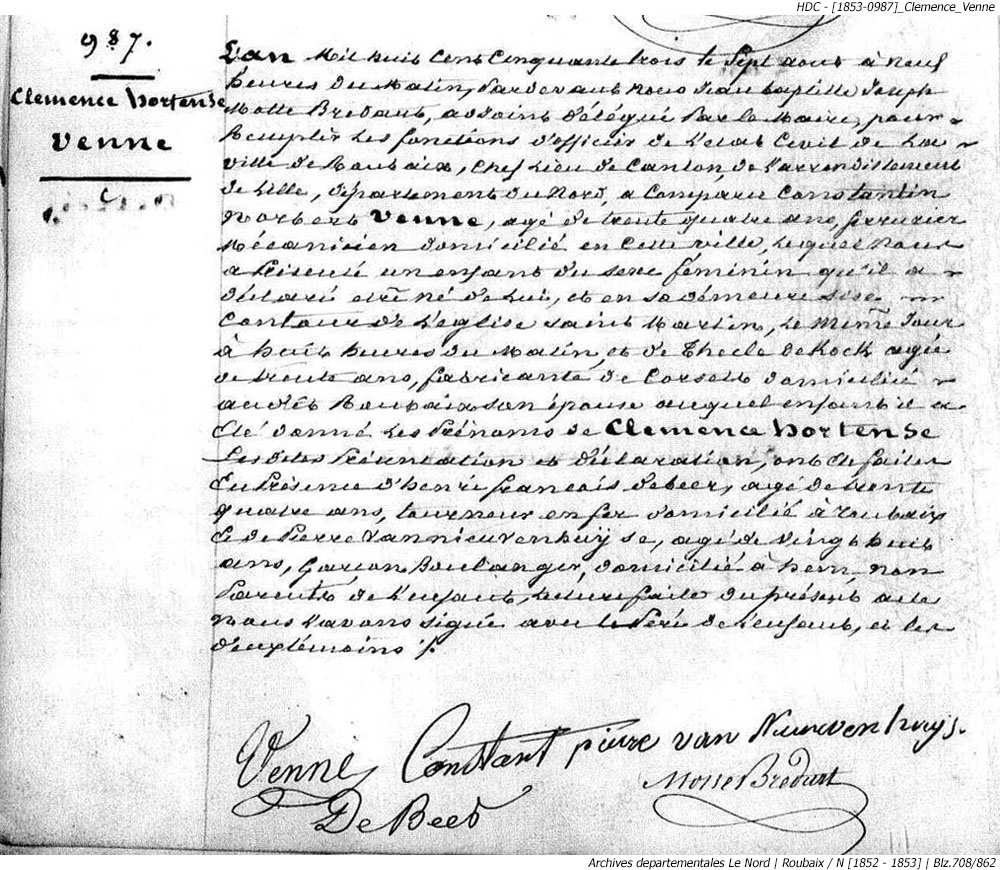 HDC - [1853-0987]_Clemence_Venne
987.
Clemence Hortense
Venne
L'an Mil huit Cent Cinquante trois le Sept aout à neuf
heures du Matin, Pardevant nous Jean baptiste Joseph
Motte Bredart, adjoint délégué Par le Maire, pour
Remplir Les fonctions d'officier de L'etat Civil de La
ville de Roubaix, Chef Lieu de Canton, de L'arrondissement
de Lille, département du Nord, a Comparu Constantin
Norbert Venne, agé de trente quatre ans, serrurier
Mécanicien domicilié en Cette ville, Lequel Nous
a Présenté un enfant du sexe féminin qu'il a
déclaré etre né de Lui, et en sa démeure sise
Contour de L'église saint Martin, Le Même Jour
à huit heures du Matin, et de Thecle DeKock agée
de trente ans, fabricante de Corsets domiciliée
audit Roubaix son épouse auquel enfant il a
été donné Les Prénoms de Clemence Hortense
Les dites Présentation et déclaration, ont été faites
En Présence d'henri françois debeer, agé de trente
quatre ans, tourneur en fer domicilié à roubaix
Et de Pierre Vannieuvenhuÿse, agé de Vingt huit
ans, Garçon Boulanger, domicilié à hem, non
Parents de L'enfant, Lecture faite du présent acte
Nous L'avons signé avec le Péré de L'enfant, et les
deux témoins ./.
Venne Constant pierre van Nieuvenhuys.
Motte Bredart
De Beer
Archives departementales Le Nord | Roubaix / N [1852 - 1853] | Blz.708/862